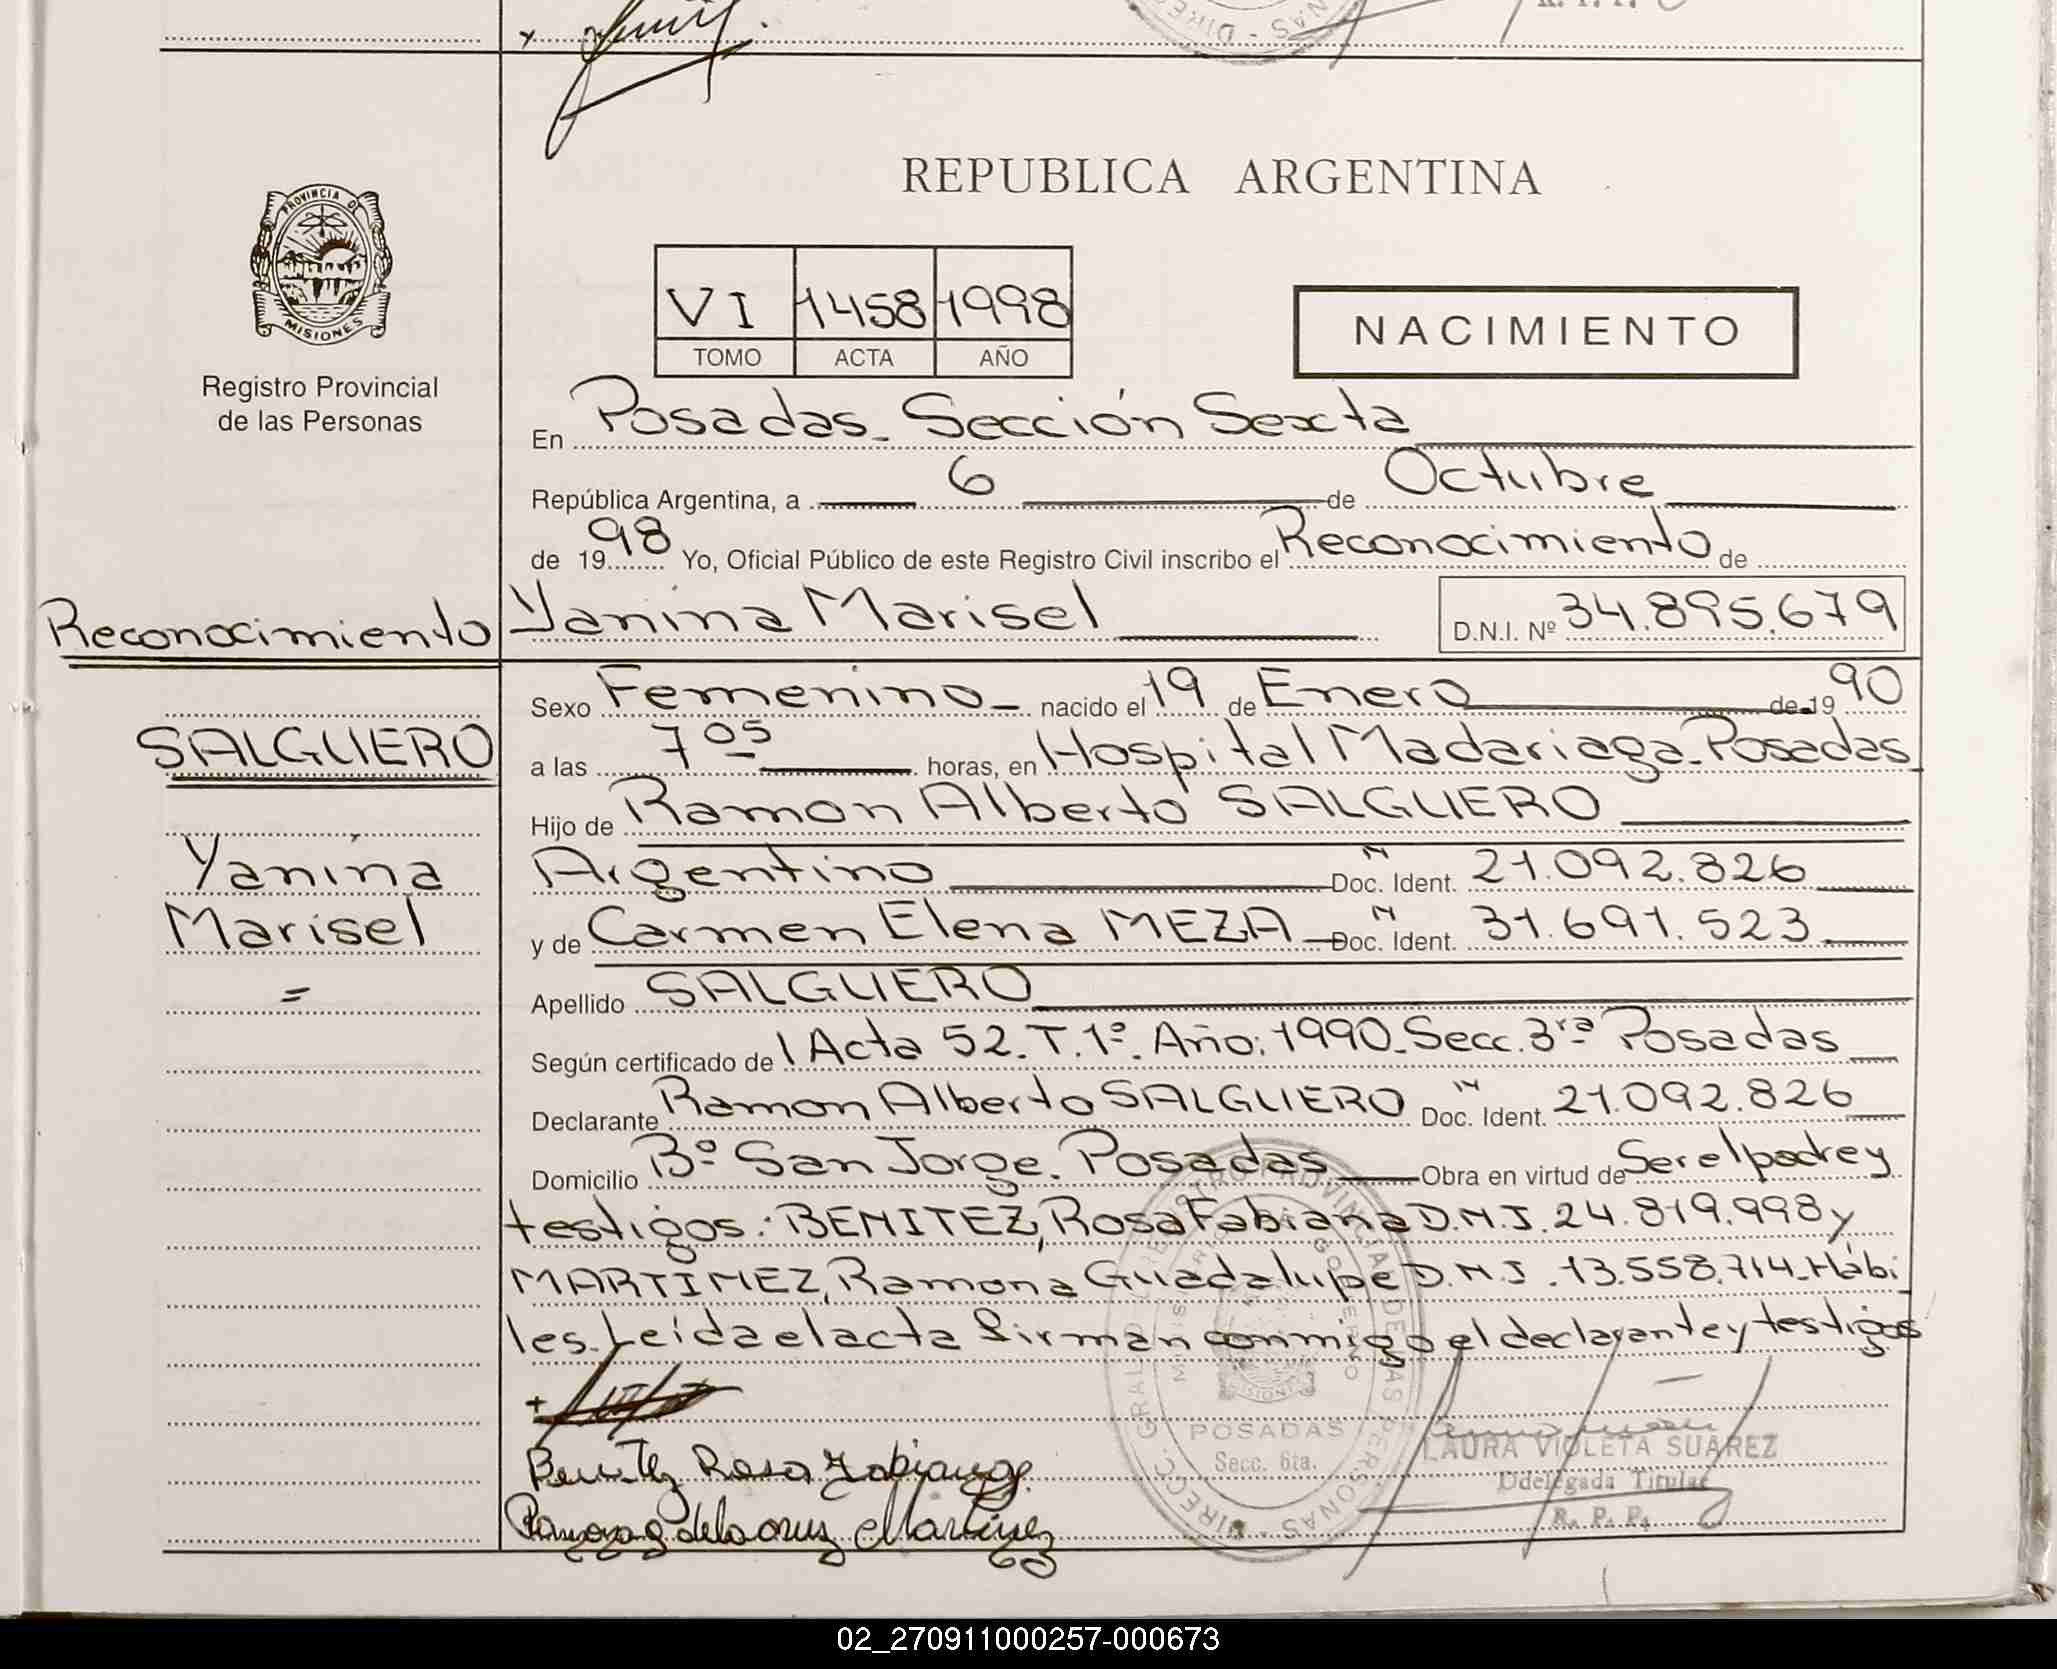 REPUBLICA ARGENTINA
PROVINCIA DE
MISIONES
Registro Provincial
de las Personas
VI 1458 1998
TOMO ACTA AÑO
NACIMIENTO
En Posadas - Sección Sexta
República Argentina, a 6 de Octubre
de 1998 Yo, Oficial Público de este Registro Civil inscribo el Reconocimiento de
Reconocimiento
Yanina Marisel D.N.I. Nº 34.895.679
Sexo Femenino nacido el 19 de Enero de 1990
SALGUERO
a las 7 05 horas, en Hospital Madariaga - Posadas
Hijo de Ramon Alberto SALGUERO
Yanina
Argentino Doc. Ident. 21.092.826
Marisel
y de Carmen Elena MEZA Doc. Ident. 31.691.523
=
Apellido SALGUERO
Según certificado de Acta 52. T. 1º. Año: 1990 - Secc. 3ra Posadas
Declarante Ramon Alberto SALGUERO Doc. Ident. 21.092.826
Domicilio Bº San Jorge. Posadas Obra en virtud de Ser el padre y
testigos: BENITEZ, Rosa Fabiana D.N.I. 24.819.998 y
MARTINEZ, Ramona Guadalupe D.N.I. 13.558.714 - Hábi
les. Leída el acta firman conmigo el declarante y testigos
Benitez Rosa Fabiana
Ramona G de la cruz Martinez
DIRECC. GRAL. DEL REGISTRO PROVINCIAL DE LAS PERSONAS
POSADAS
Secc. 6ta.
LAURA VIOLETA SUAREZ
Ddelegada Titular
R. P. P.
02_270911000257-000673